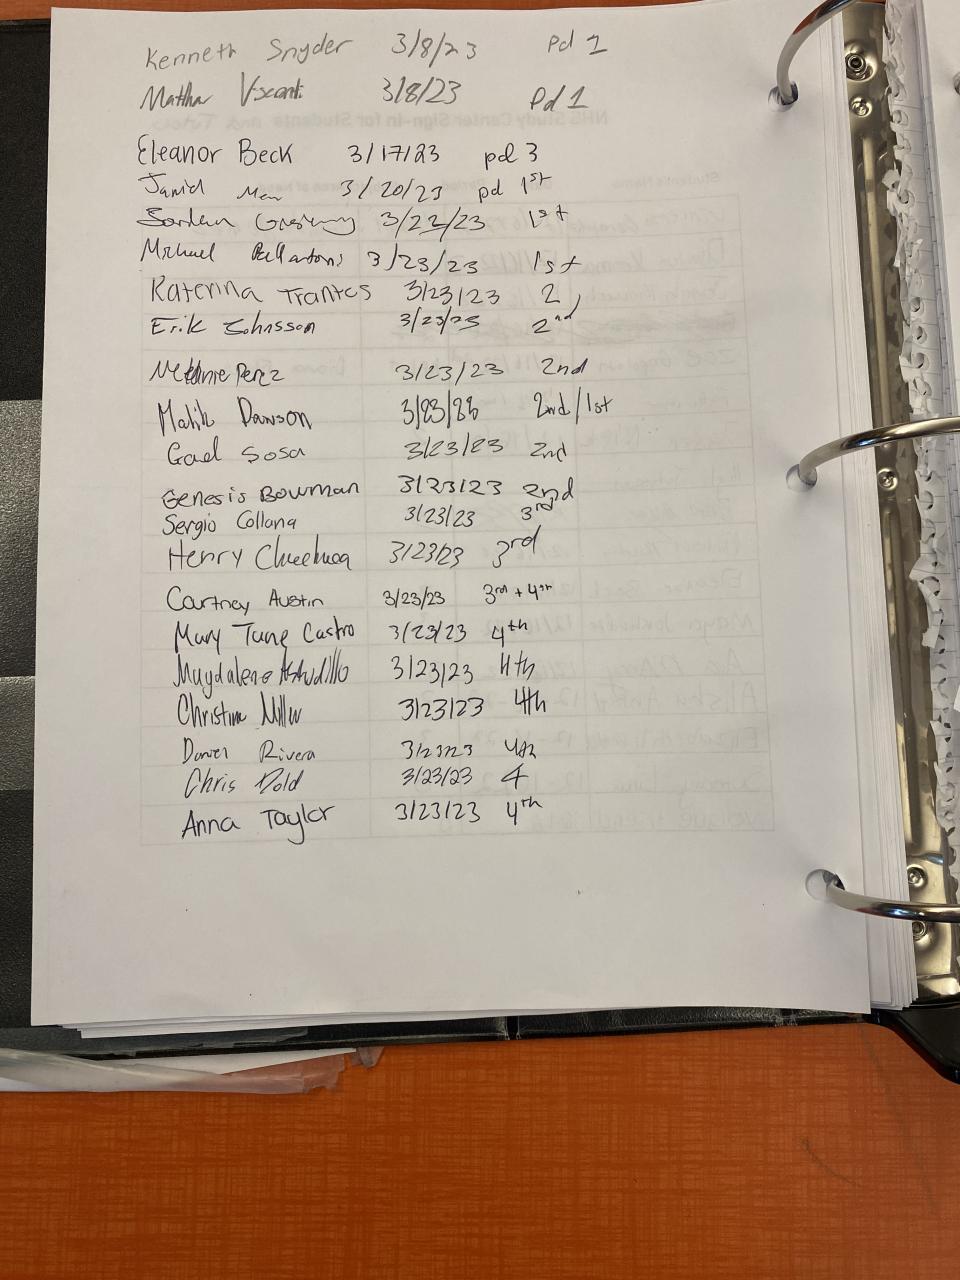 Kenneth Snyder 3/8/23 pd 1
3/8/23 Pd 1
Eleanor Beck 3/17/23 pd 3
3/20/23 pd 1st
3/22/23 1st
Michael 3/23/23 1st
Katerina Trantos 3/23/23 2
Erik Johnsson 3/23/23 2nd
Melanie Perez 3/23/23 2nd
Malik Dawson 3/23/23 2nd/1st
Gael Sosa 3/23/23 2nd
Genesis Bowman 3/23/23 2nd
Sergio Collana 3/23/23 3rd
Henry 3/23/23 3rd
Courtney Austin 3/23/23 3rd + 4th
Mary Tune Castro 3/23/23 4th
Magdalena Astudillo 3/23/23 4th
Christine Miller 3/23/23 4th
Daniel Rivera 3/23/23 4th
Chris Dold 3/23/23 4
Anna Taylor 3/23/23 4th